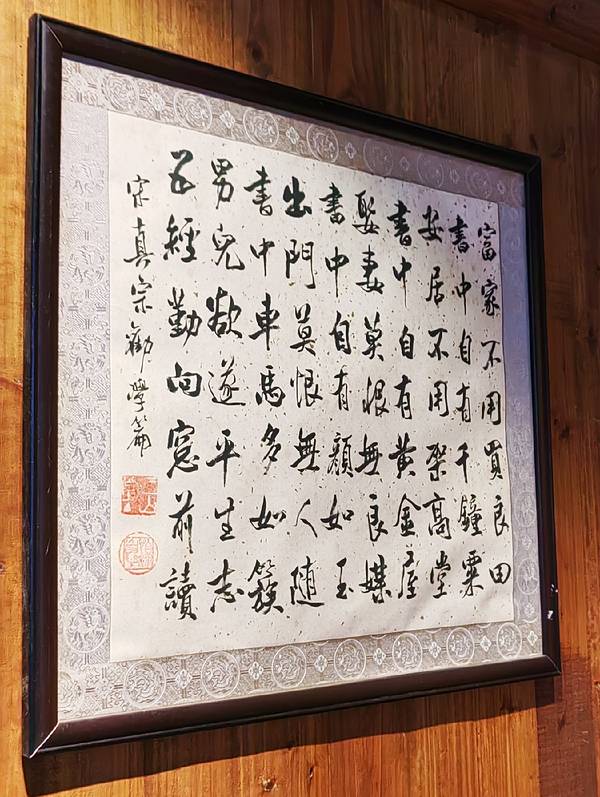 富家不用買良田
書中自有千鐘粟
安居不用架高堂
書中自有黃金屋
娶妻莫恨無良媒
書中自有顏如玉
出門莫恨無人隨
書中車馬多如簇
男兒欲遂平生志
五經勤向窓前讀
宋真宗勸學篇